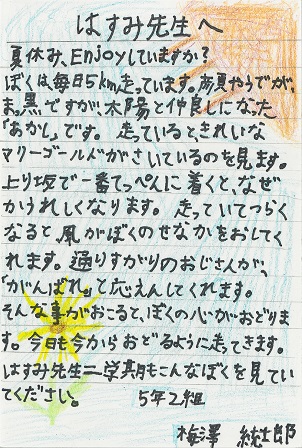 はすみ先生へ
夏休み、Enjoyしていますか？
ぼくは、毎日5km走っています。顔やうでが、
ま、黒ですが、太陽と仲良しになった
「あかし」です。走っていると、きれいな
マリーゴールドがさいているのを見ます。
上り坂で一番てっぺんに着くと、なぜ
かうれしくなります。走っていてつらく
なると、風がぼくのせなかをおしてく
れます。通りすがりのおじさんが、
「がんばれ。」と応えんしてくれます。
そんな事がおこると、ぼくの心がおどりま
す。今日も今からおどるように走ってきます。
はすみ先生二学期もこんなぼくを見てい
てください。　5年2組
梅澤　統士郎